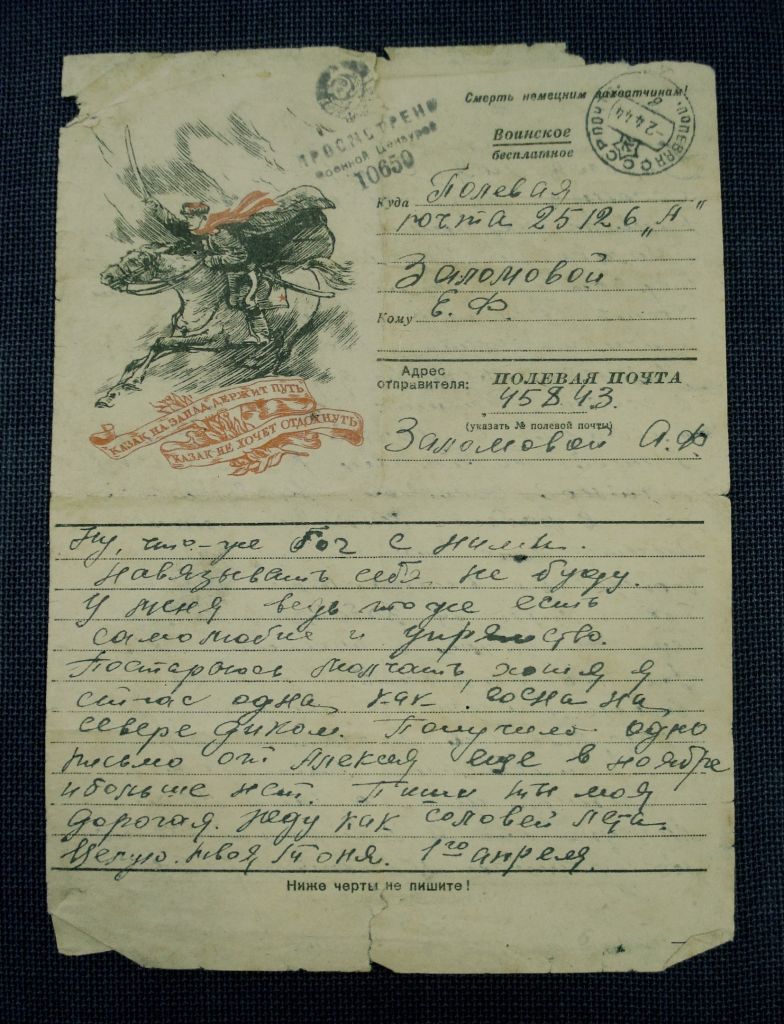 Смерть немецким захватчикам!
ПРОСМОТРЕНО
Военной Цензурой
10650
Воинское
бесплатное
СССР
ПОЛЕВАЯ ПОЧ
-2 4 44
Куда Полевая
почта 25126 „А"
Заломовой
Кому Е. Ф.
Адрес
отправителя:
ПОЛЕВАЯ ПОЧТА
45843.
(указать № полевой почты)
Заломовой А. Ф
КАЗАК НА ЗАПАД ДЕРЖИТ ПУТЬ
КАЗАК НЕ ХОЧЕТ ОТДОХНУТЬ
Ну, что-же Бог с ними.
Навязывать себя не буду.
У меня ведь тоже есть
самолюбие и упрямство.
Постараюсь молчать, хотя я
сичас одна как сосна на
севере диком. Получила одно
письмо от Алексея еще в ноябре
и больше нет. Пиши ты моя
дорогая. Жду как соловей лета.
Целую. твоя Тоня. 1го апреля.
Ниже черты не пишите!